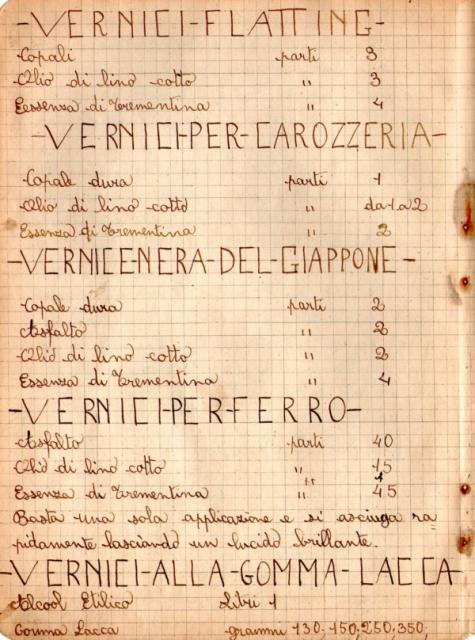 -VERNICI-FLATTING-
Copali parti 3
Olio di lino cotto " 3
Essenza di Trementina " 4
-VERNICI-PER-CAROZZERIA-
Copale dura parti 1
Olio di lino cotto " da 1 a 2
Essenza di Trementina " 2
-VERNICE-NERA-DEL-GIAPPONE-
Copale dura parti 2
Asfalto " 2
Olio di lino cotto " 2
Essenza di Trementina " 4
-VERNICI-PER-FERRO-
Asfalto parti 40
Olio di lino cotto " 15
Essenza di Trementina " 45
Basta una sola applicazione e si asciuga ra=
pidamente lasciando un lucido brillante.
-VERNICI-ALLA-GOMMA-LACCA-
Alcool Etilico Litri 1
Gomma Lacca grammi 130; 150; 250; 350.